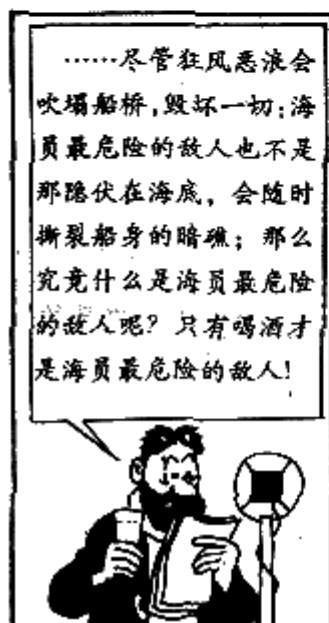 ……尽管狂风恶浪会
吹塌船桥，毁坏一切；海
员最危险的敌人也不是
那隐伏在海底，会随时
撕裂船身的暗礁；那么
究竟什么是海员最危险
的敌人呢？只有喝酒才
是海员最危险的敌人！